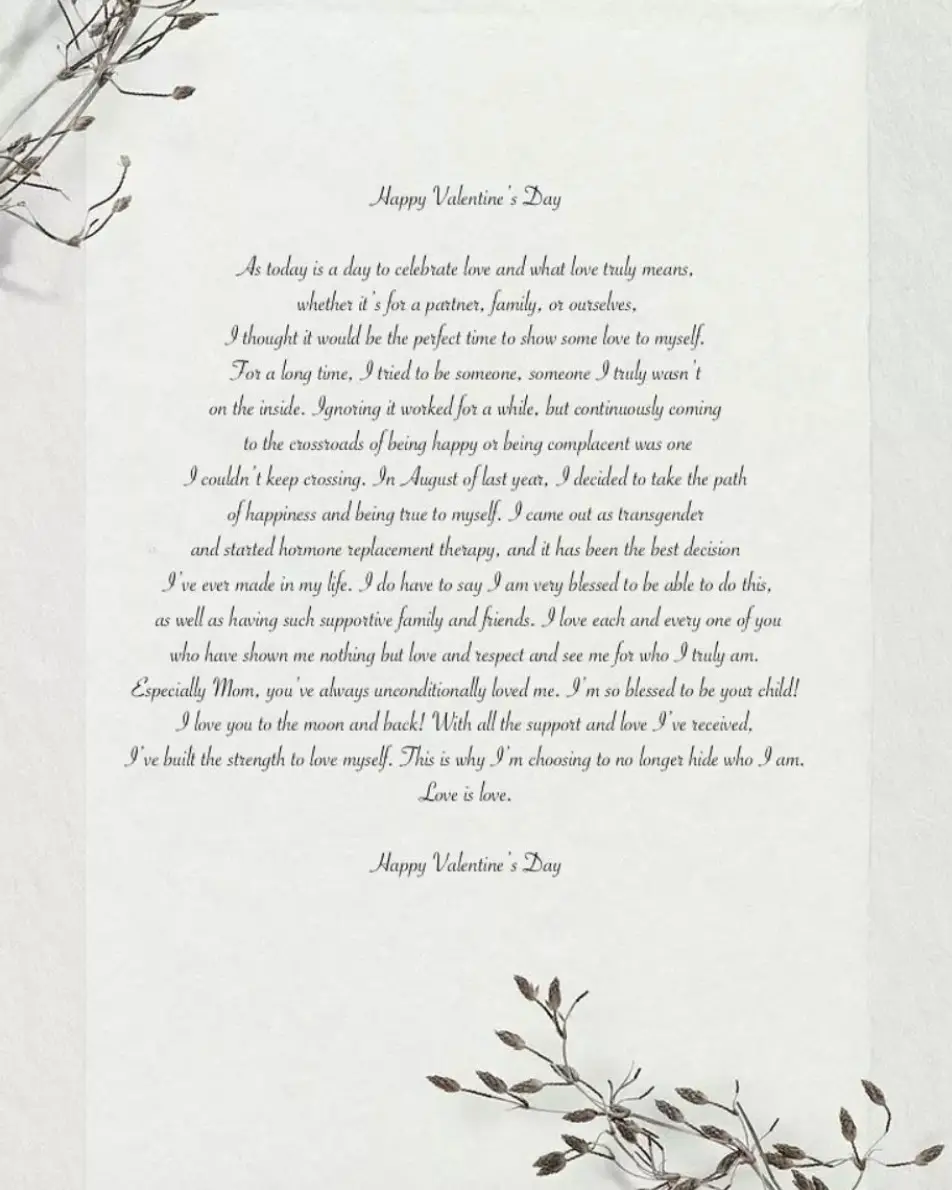 Happy Valentine's Day
As today is a day to celebrate love and what love truly means,
whether it's for a partner, family, or ourselves,
I thought it would be the perfect time to show some love to myself.
For a long time, I tried to be someone, someone I truly wasn't
on the inside. Ignoring it worked for a while, but continuously coming
to the crossroads of being happy or being complacent was one
I couldn't keep crossing. In August of last year, I decided to take the path
of happiness and being true to myself. I came out as transgender
and started hormone replacement therapy, and it has been the best decision
I've ever made in my life. I do have to say I am very blessed to be able to do this,
as well as having such supportive family and friends. I love each and every one of you
who have shown me nothing but love and respect and see me for who I truly am.
Especially Mom, you've always unconditionally loved me. I'm so blessed to be your child!
I love you to the moon and back! With all the support and love I've received,
I've built the strength to love myself. This is why I'm choosing to no longer hide who I am.
Love is love.
Happy Valentine's Day